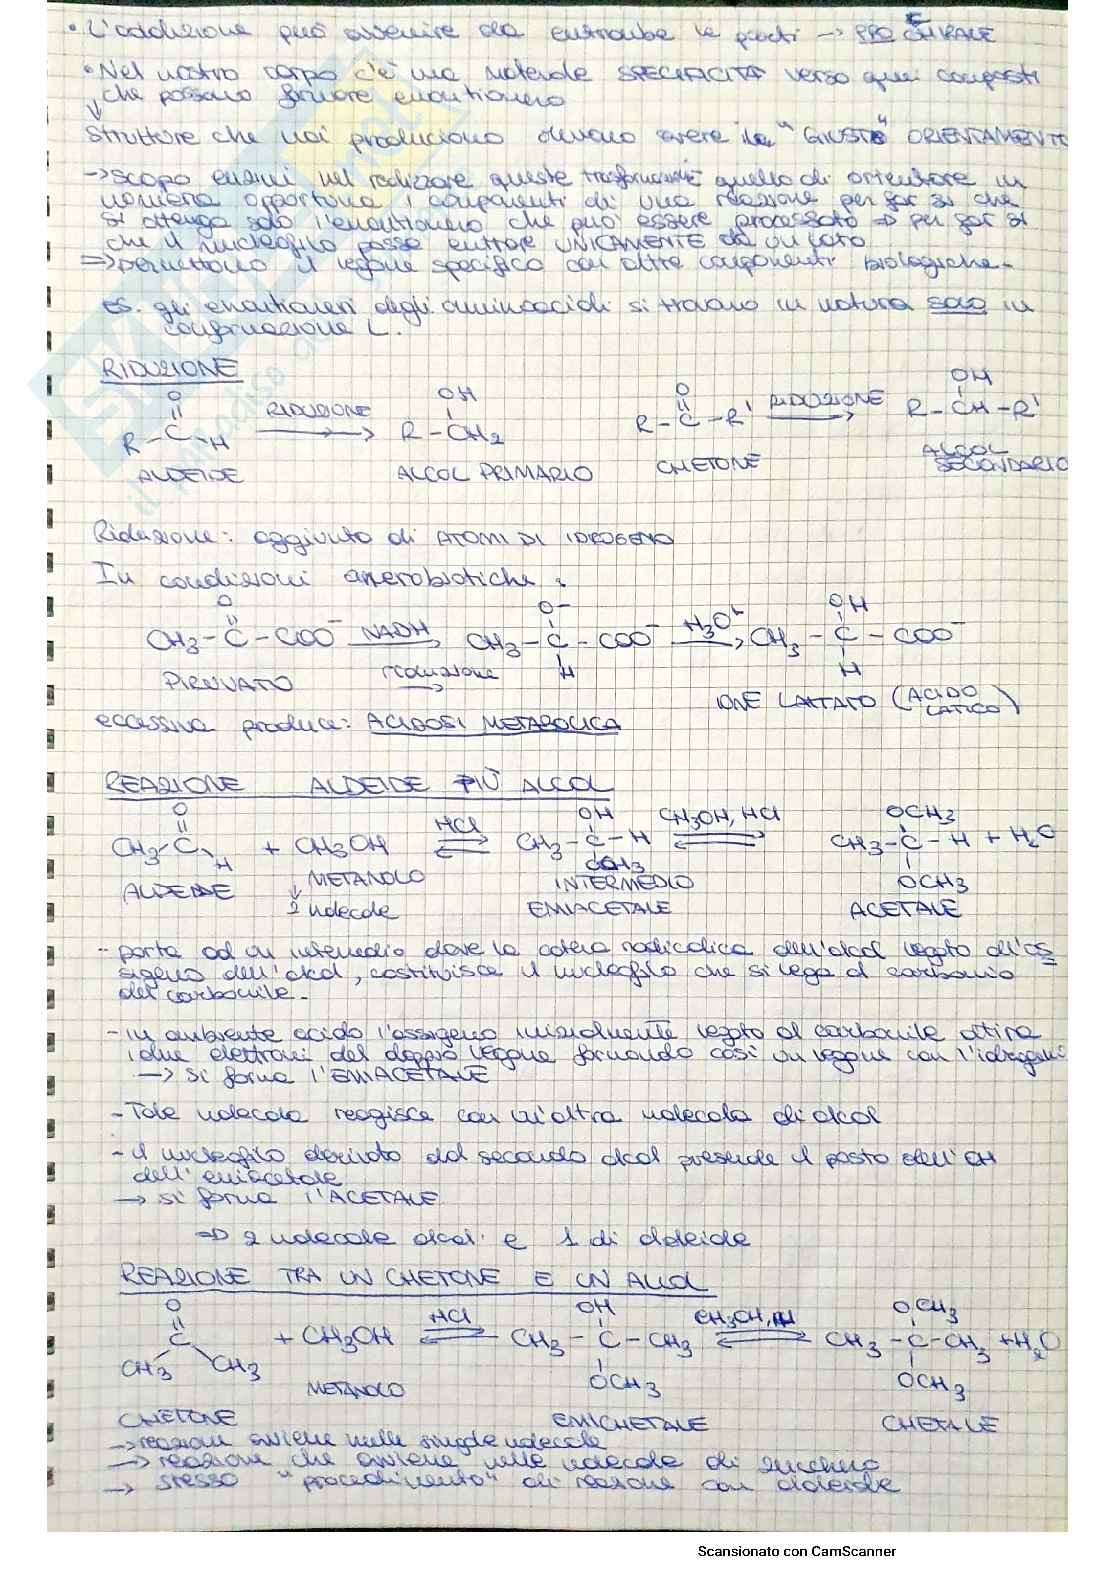 • L'addizione può avvenire da entrambe le parti → PRO CHIRALE
• Nel nostro corpo c'è una notevole SPECIFICITÀ verso quei composti
che possono formare enantiomero
↓
Strutture che noi produciamo devono avere il "GIUSTO" ORIENTAMENTO
→ scopo enzimi nel realizzare queste trasformazioni quello di orientare in
maniera opportuna i componenti di una reazione per far sì che
si ottenga solo l'enantiomero che può essere processato ⇒ per far sì
che il nucleofilo possa entrare UNICAMENTE da un lato
⇒ permettono il legame specifico con altre componenti biologiche.
es. gli enantiomeri degli amminoacidi si trovano in natura solo in
configurazione L.
RIDUZIONE
O OH O OH
R-C-H RIDUZIONE → R-CH2 R-C-R' RIDUZIONE → R-CH-R'
ALDEIDE ALCOL PRIMARIO CHETONE ALCOL SECONDARIO
Riduzione: aggiunta di ATOMI DI IDROGENO
In condizioni anerobiotiche:
O O- OH
CH3-C-COO- NADH → CH3-C-COO- H3O+ → CH3-C-COO-
riduzione → H H
PIRUVATO IONE LATTATO (ACIDO LATTICO)
eccessiva produce: ACIDOSI METABOLICA
REAZIONE ALDEIDE PIÙ ALCOL
O OH OCH3
CH3-C-H + CH3OH HCl ⇌ CH3-C-H CH3OH, HCl ⇌ CH3-C-H + H2O
OCH3 OCH3
ALDEIDE METANOLO INTERMEDIO
↓
2 molecole EMIACETALE ACETALE
- porta ad un intermedio dove la catena radicalica dell'alcol legato all'os
sigeno dell'alcol, costituisce il nucleofilo che si lega al carbonio
del carbonile.
- in ambiente acido l'ossigeno inizialmente legato al carbonile attira
i due elettroni del doppio legame formando così un legame con l'idrogeno
→ si forma l'EMIACETALE
- Tale molecola reagisce con un'altra molecola di alcol
- il nucleofilo derivato dal secondo alcol prende il posto dell'OH
dell'emiacetale
→ si forma l'ACETALE
⇒ 2 molecole alcol e 1 di aldeide
REAZIONE TRA UN CHETONE E UN ALCOL
O OH OCH3
C + CH3OH HCl ⇌ CH3-C-CH3 CH3OH, ⇌ CH3-C-CH3 + H2O
CH3 CH3 OCH3 OCH3
METANOLO
CHETONE EMICHETALE CHETALE
→ reazioni avviene nelle singole molecole
→ reazione che avviene nelle molecole di zucchero
→ stesso "procedimento" di reazione con aldeide
Scansionato con CamScanner